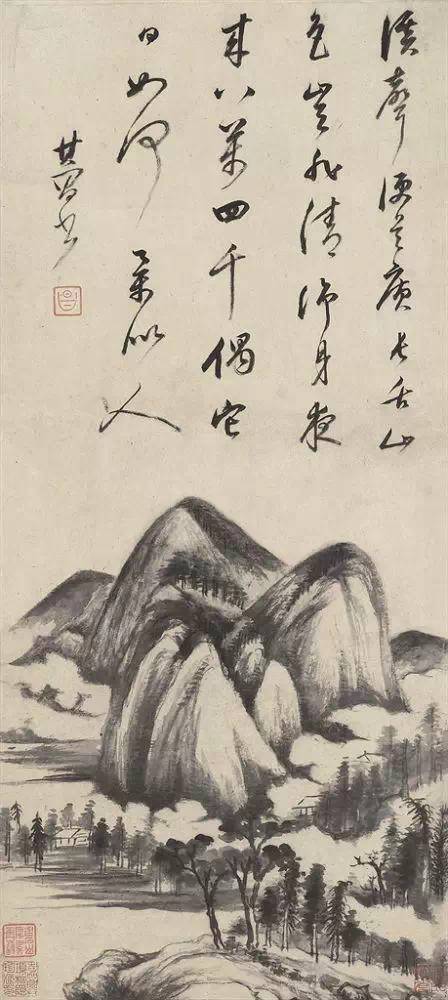 溪聲便是廣長舌山
色豈非清淨身夜
來八萬四千偈它
日如何舉似人
其昌書